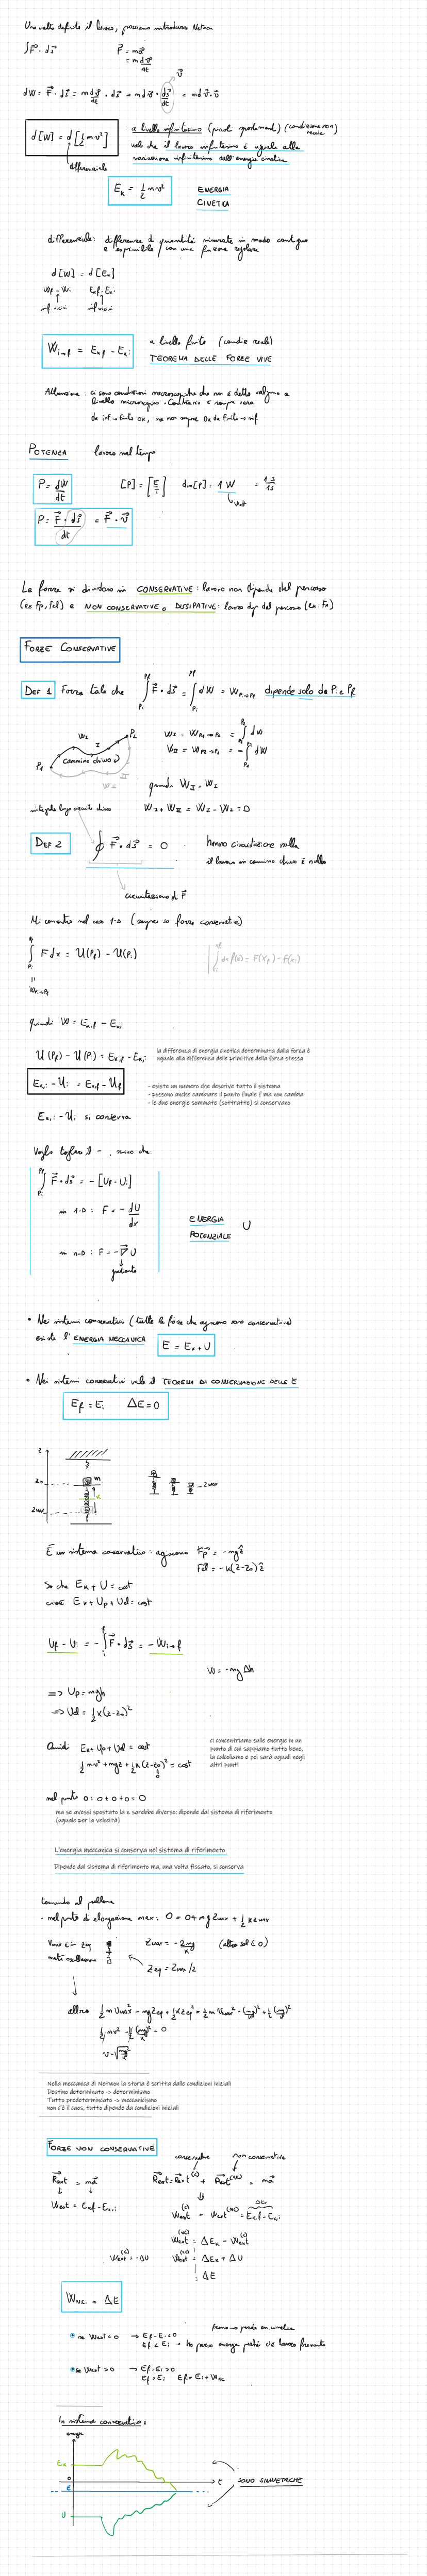 Una volta definito il lavoro, possiamo introdurre Netwon
∫F⃗ · ds⃗
F⃗ = ma⃗
= m dv⃗/dt
dW = F⃗ · ds⃗ = m dv⃗/dt · ds⃗ = m dv⃗ · ds⃗/dt = m dv⃗ · v⃗
v⃗
d[W] = d[½mv²]
differenziale
a livello infinitesimo (piccoli spostamenti) (condizione non reale)
vale che il lavoro infinitesimo è uguale alla
variazione infinitesima dell'energia cinetica
E_K = ½mv²
ENERGIA
CINETICA
differenziale: differenza di quantità misurate in modo contiguo
e esprimibile con una funzione regolare
d[W] = d[E_K]
W_f - W_i
E_Kf - E_Ki
inf. vicini
inf. vicini
W_i→f = E_Kf - E_Ki
a livello finito (condiz. reali)
TEOREMA DELLE FORZE VIVE
Attenzione: ci sono condizioni macroscopiche che non è detto valgano a
livello microscopico. Contrario è sempre vero
da inf → finito ok, ma non sempre ok da finito → inf
POTENZA
lavoro nel tempo
P = dW/dt
[P] = [E/T]
dim[P] = 1 W = 1J/1s
Watt
P = F⃗ · ds⃗/dt = F⃗ · v⃗
Le forze si dividono in CONSERVATIVE: lavoro non dipende dal percorso
(es Fp, Fel) e NON CONSERVATIVE o DISSIPATIVE: lavoro dip dal percorso (es: Fa)
FORZE CONSERVATIVE
DEF 1
Forza tale che ∫F⃗ · ds⃗ = ∫dW = W_Pi→Pf dipende solo da Pi e Pf
W_I
I
P2
P1
cammino chiuso
II
W_II
W_I = W_P1→P2 = ∫dW
W_II = W_P2→P1 = -∫dW
quindi W_II = W_I
W_I + W_II = W_I - W_I = 0
integrale lungo circuito chiuso
DEF 2
∮F⃗ · ds⃗ = 0
hanno circuitazione nulla
il lavoro in cammino chiuso è nullo
circuitazione di F⃗
Mi concentro nel caso 1-D (sempre in forze conservative)
∫F dx = U(Pf) - U(Pi)
W_Pi→Pf
quindi W = E_Kf - E_Ki
U(Pf) - U(Pi) = E_Kf - E_Ki
la differenza di energia cinetica determinata dalla forza è
uguale alla differenza delle primitive della forza stessa
E_Ki - U_i = E_Kf - U_f
- esiste un numero che descrive tutto il sistema
- possono anche cambiare il punto finale f ma non cambia
- le due energie sommate (sottratte) si conservano
E_Ki - U_i si conserva
Voglio togliere il - , scrivo che:
∫F⃗ · ds⃗ = -[U_f - U_i]
in 1-D: F = -dU/dx
in n-D: F = -∇⃗U
gradiente
ENERGIA
POTENZIALE
U
• Nei sistemi conservativi (tutte le forze che agiscono sono conservative)
esiste l'ENERGIA MECCANICA
E = E_K + U
• Nei sistemi conservativi vale il TEOREMA DI CONSERVAZIONE DELLE E
E_f = E_i ΔE = 0
z
z0
zmax
m
- zmax
È un sistema conservativo: agiscono Fp⃗ = -mgẑ
Fel⃗ = -k(z-z0)ẑ
So che E_K + U = cost
cioè E_K + U_p + U_el = cost
U_f - U_i = -∫F⃗ · ds⃗ = -W_i→f
W = -mgΔh
=> U_p = mgh
=> U_el = ½k(z-z0)²
Quindi E_K + U_p + U_el = cost
½mv² + mgz + ½k(z-z0)² = cost
ci concentriamo sulle energie in un
punto di cui sappiamo tutto bene,
la calcoliamo e poi sarà uguali negli
altri punti
nel punto 0: 0 + 0 + 0 = 0
ma se avessi spostato la z sarebbe diverso: dipende dal sistema di riferimento
(uguale per la velocità)
L'energia meccanica si conserva nel sistema di riferimento
Dipende dal sistema di riferimento ma, una volta fissato, si conserva
tornando al pallone
- nel punto di elongazione max: 0 = 0 + mg zmax + ½k zmax
Vmax è in zeq
metà oscillazione
zmax = -2mg/k (altra sol è 0)
zeq = zmax/2
allora ½m Vmax² - mg zeq + ½k zeq² = ½m Vmax² - (mg)²/k + ½(mg)²/k
½mv² - ½(mg)²/k = 0
Nella meccanica di Netwon la storia è scritta dalle condizioni iniziali
Destino determinato -> determinismo
Tutto predeterminato -> meccanicismo
non c'è il caos, tutto dipende da condizioni iniziali
FORZE NON CONSERVATIVE
conservative
non conservative
R⃗est = ma⃗
R⃗est = R⃗est^(c) + R⃗est^(nc) = ma⃗
West = E_Kf - E_Ki
West^(c) + West^(nc) = E_Kf - E_Ki
ΔE_K
West^(nc) = ΔE_K - West^(c)
West^(c) = -ΔU
West^(nc) = ΔE_K + ΔU
= ΔE
W_N.C. = ΔE
• se West < 0 → E_f - E_i < 0
E_f < E_i → ho perso energia perché c'è lavoro frenante
freno → perdo en. cinetica
• se West > 0 → E_f - E_i > 0
E_f > E_i E_f = E_i + W_nc
In sistema conservativo:
energia
E_K
0
E
U
t
SONO SIMMETRICHE